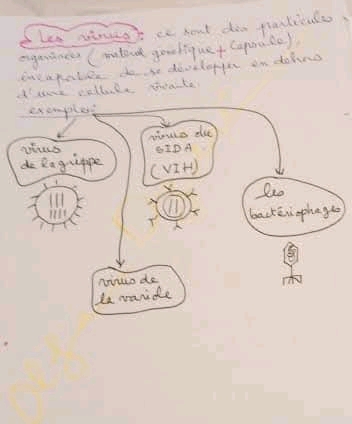 Les virus: ce sont des particules
organisées (matériel génétique + Capsule),
incapable de se développer en dehors
d'une cellule vivante.
exemples:
virus
de la grippe
virus du
SIDA
(VIH)
les
bactériophages
virus de
la variole